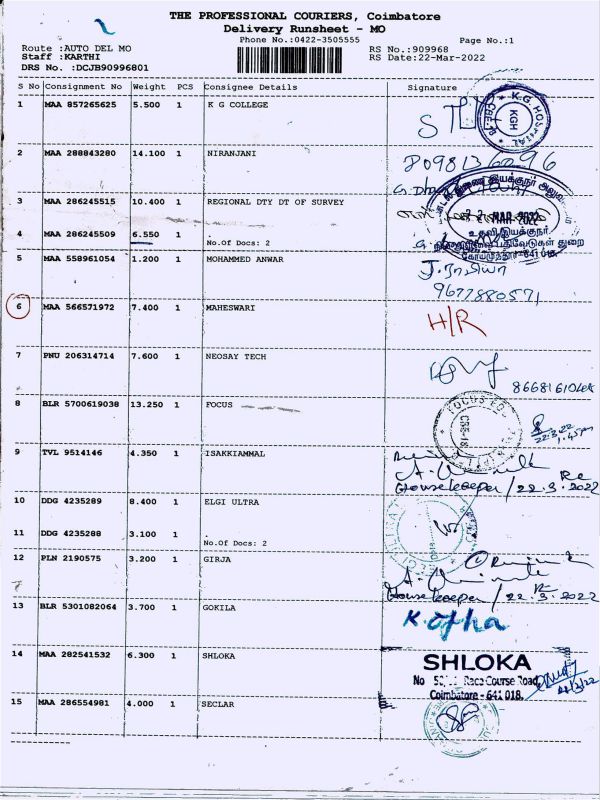 THE PROFESSIONAL COURIERS, Coimbatore
Delivery Runsheet - MO
Phone No.:0422-3505555 Page No.:1
Route :AUTO DEL MO RS No.:909968
Staff :KARTHI RS Date:22-Mar-2022
DRS No. :DCJB90996801
S No Consignment No Weight PCS Consignee Details Signature
1 MAA 857265625 5.500 1 K G COLLEGE
K.G. HOSPITAL
KGH
CBE-18
2 MAA 288843280 14.100 1 NIRANJANI
3 MAA 286245515 10.400 1 REGIONAL DTY DT OF SURVEY
MAR 2022
4 MAA 286245509 6.550 1
No.Of Docs: 2
உதவி இயக்குநர்
5 MAA 558961054 1.200 1 MOHAMMED ANWAR
9677880571
6 MAA 566571972 7.400 1 MAHESWARI
H/R
7 PNU 206314714 7.600 1 NEOSAY TECH
8 BLR 5700619038 13.250 1 FOCUS
22.3.22
1.45pm
9 TVL 9514146 4.350 1 ISAKKIAMMAL
Housekeeper / 22.3.2022
10 DDG 4235289 8.400 1 ELGI ULTRA
11 DDG 4235288 3.100 1 .
No.Of Docs: 2
12 PLN 2190575 3.200 1 GIRJA
Housekeeper / 22.3.2022
13 BLR 5301082064 3.700 1 GOKILA
14 MAA 282541532 6.300 1 SHLOKA
SHLOKA
Race Course Road,
Coimbatore - 641 018.
15 MAA 286554981 4.000 1 SECLAR